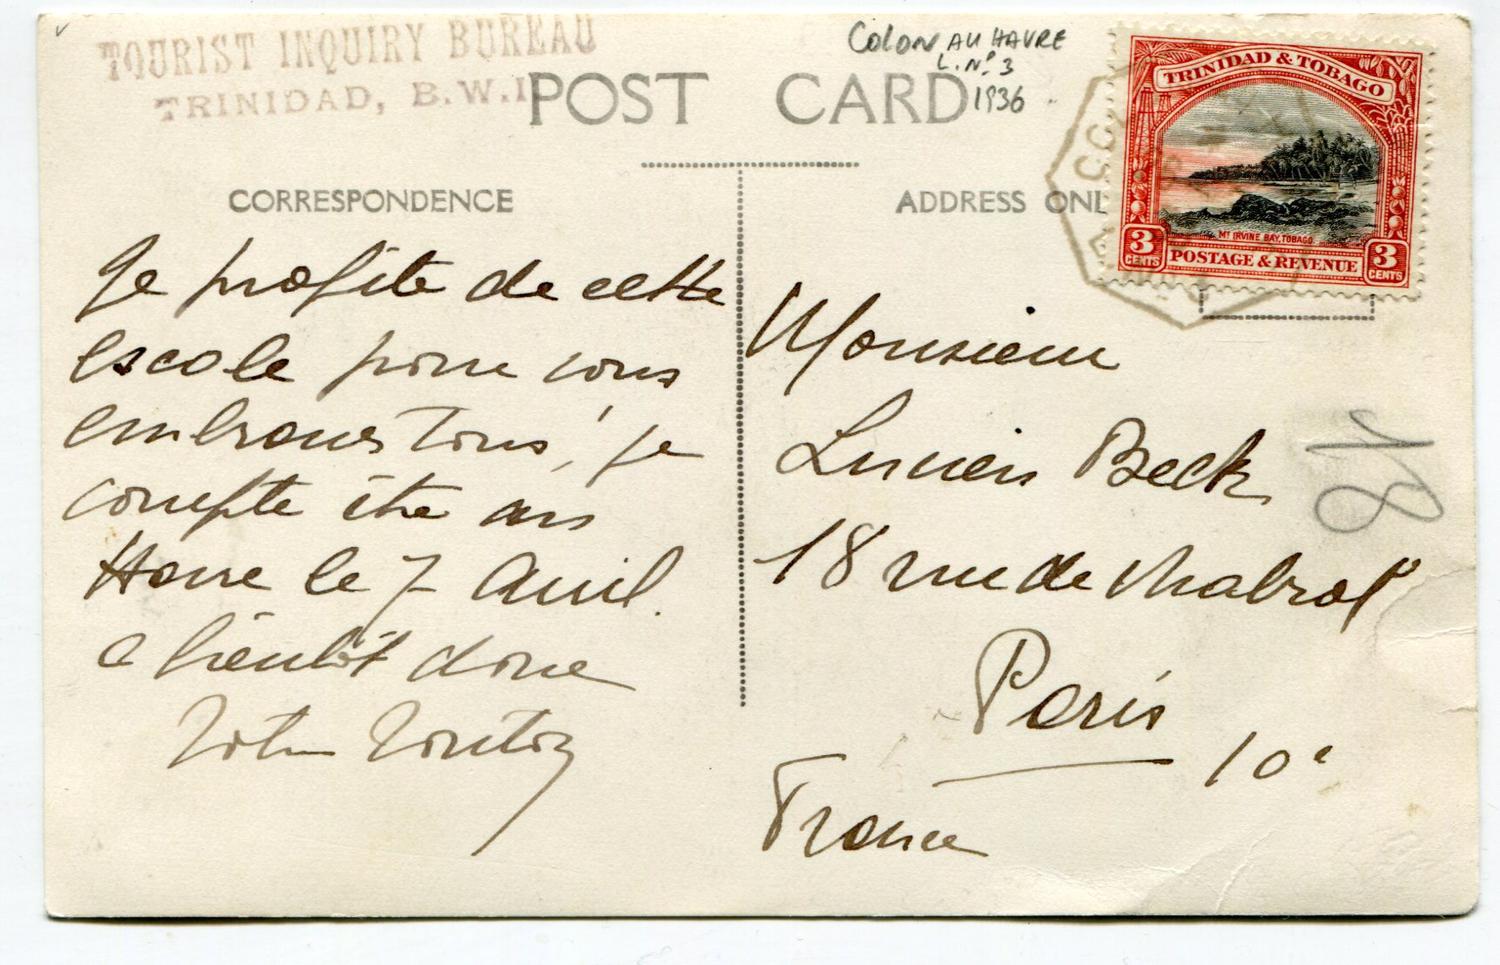 TOURIST INQUIRY BUREAU
TRINIDAD, B.W.I.
POST CARD
COLON AU HAVRE
L. Nº 3
1936
TRINIDAD & TOBAGO
Mt IRVINE BAY, TOBAGO
3 CENTS
POSTAGE & REVENUE
3 CENTS
CORRESPONDENCE
Je profite de cette
escale pour vous
embrasser tous, je
compte être au
Havre le 7 Avril.
a bientôt donc
ADDRESS ONL
Monsieur
Lucien Beck
18 rue de Chabrol
Paris
10e
France
18